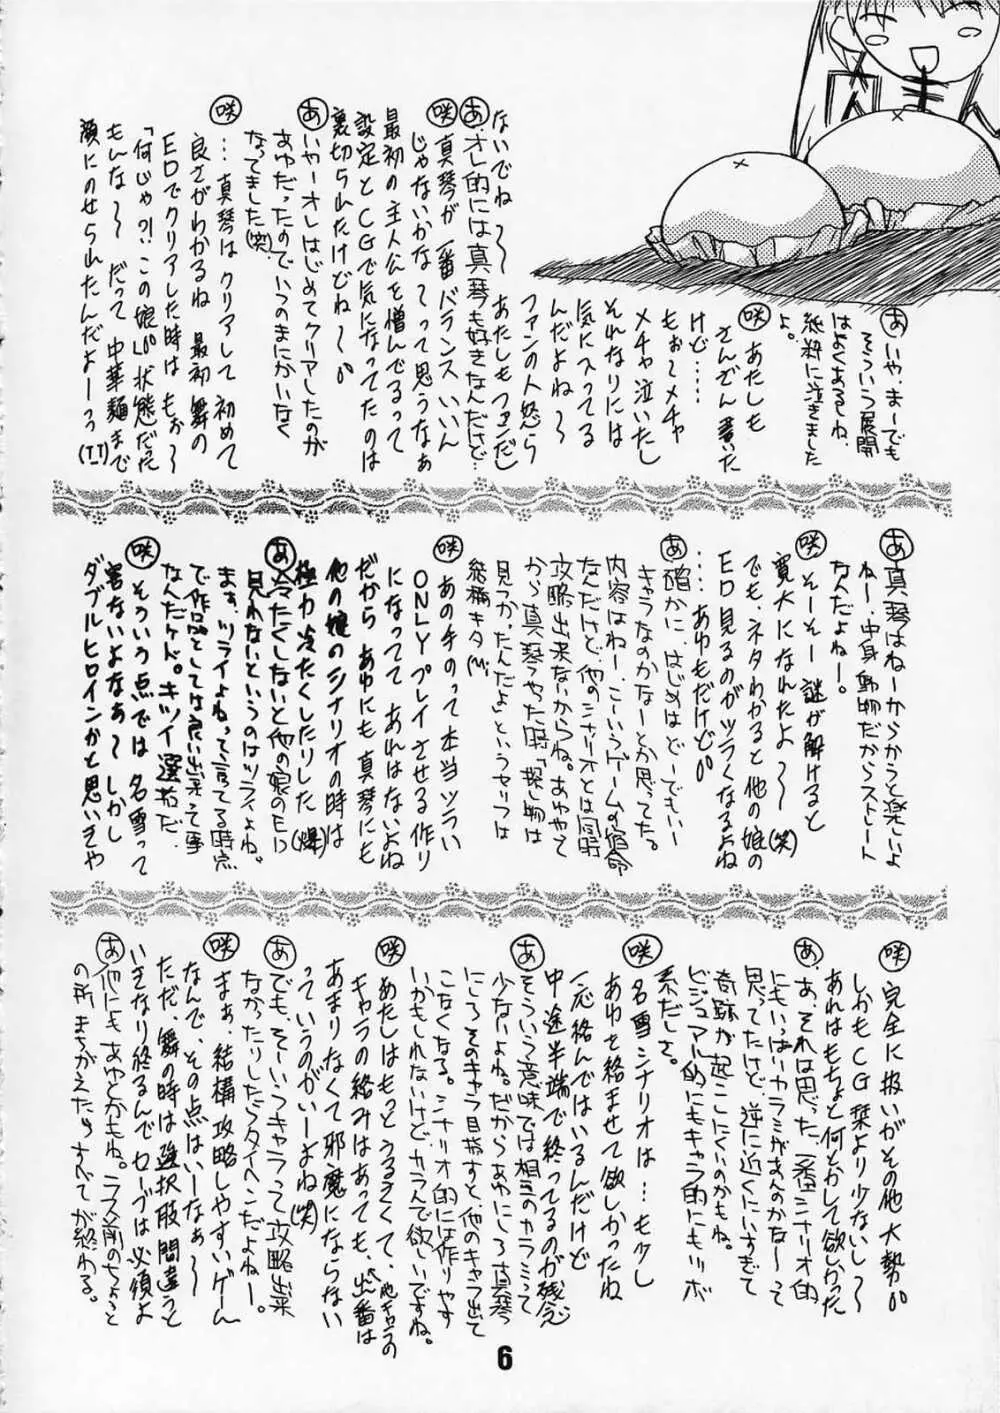 あ いや、まーでも
そういう展開
はよくあるしね、
純粋に泣きました
よ。
咲 あたしも
さんざん書いた
けど……
もぉ〜メチャ
メチャ泣いたし
それなりには
気に入ってる
んだよね〜
ファンの人怒ら
ないでね〜 あたしもファンだし
あ オレ的には真琴も好きなんだけど…
咲 真琴が一番バランスいいん
じゃないかなって思うなぁ
最初の主人公を憎んでるって
設定とCGで気になってたのは
裏切られたけどね〜
あ いやーオレはじめてクリアしたのが
あゆだったのでいつのまにかいなく
なってました(笑)
咲 …真琴はクリアして初めて
良さがわかるね 最初舞の
EDでクリアした時はもぉ〜
「何じゃ?!この娘」状態だた
もんな〜 だって中華麺まで
顔にのせられたんだよーっ(T_T)
あ 真琴はねーからかうと楽しいよ
ねー、中身動物だからストレート
なんだよねー。
咲 そーそー 謎が解けると
寛大になれたよ〜(笑)
でも、ネタわかると他の娘の
ED見るのがツラくなるよね
……あゆもだけど
あ 確かに、はじめはどーでもいー
キャラなのかなーとか思ってた。
内容はねー、こーいうゲームの宿命
なんだけど、他のシナリオとは同時
攻略出来ないからね。あゆやて
から真琴やった時「探し物は
見つかったんだよ」というセリフは
結構キタ
咲 あの手のって本当ツラい
ONLYプレイさせる作り
になってて あれはないよね
だから あゆにも真琴にも
他の娘のシナリオの時は
極力冷たくしたりした(爆)
あ 冷たくしないと他の娘のED
見れないというのはツライよね。
ます。ツライよねって言ってる時点
で作品としては良い出来って事
なんだケド。キツイ選択だ。
咲 そういう点では名雪って
害ないよなぁ〜しかし
ダブルヒロインかと思いきや
咲 完全に扱いがその他大勢
しかもCG栞より少ないし〜
あれはもちょと何とかして欲しかった
あ あ、それは思った、一応シナリオ的
にもいっぱいカラミがあんのかな〜って
思ってたけど、逆に近くにいすぎて
奇跡が起こしにくいのかもね。
ビジュアル的にもキャラ的にもツボ
系だしさ。
咲 名雪シナリオは…も少し
あゆを絡ませて欲しかったね
一応絡んではいるんだけど
中途半端で終ってるのが残念
あ そういう意味では相互のカラミって
少ないよね。だからあゆにしろ真琴
にしろそのキャラ目指すと、他のキャラ出て
こなくなる。シナリオ的には作りやす
いかもしれないけど、カラんで欲しいですね。
咲 あたしはもっとうるさくて、他キャラの
キャラの絡みはあっても、出番は
あまりなくて邪魔にならない
っていうのがいーよね(笑)
あ でも、そーいうキャラって攻略出来
なかったりしたらタイヘンだよねー。
咲 まぁ、結構攻略しやすいゲーム
なんで、その点はいーなぁ〜
ただ、舞の時は選択肢間違うと
いきなり終るんでセーブは必須よ
あ 他にもあゆとかもね。ラス前のちょっと
の所、まちがえたらすべてが終わる。
6